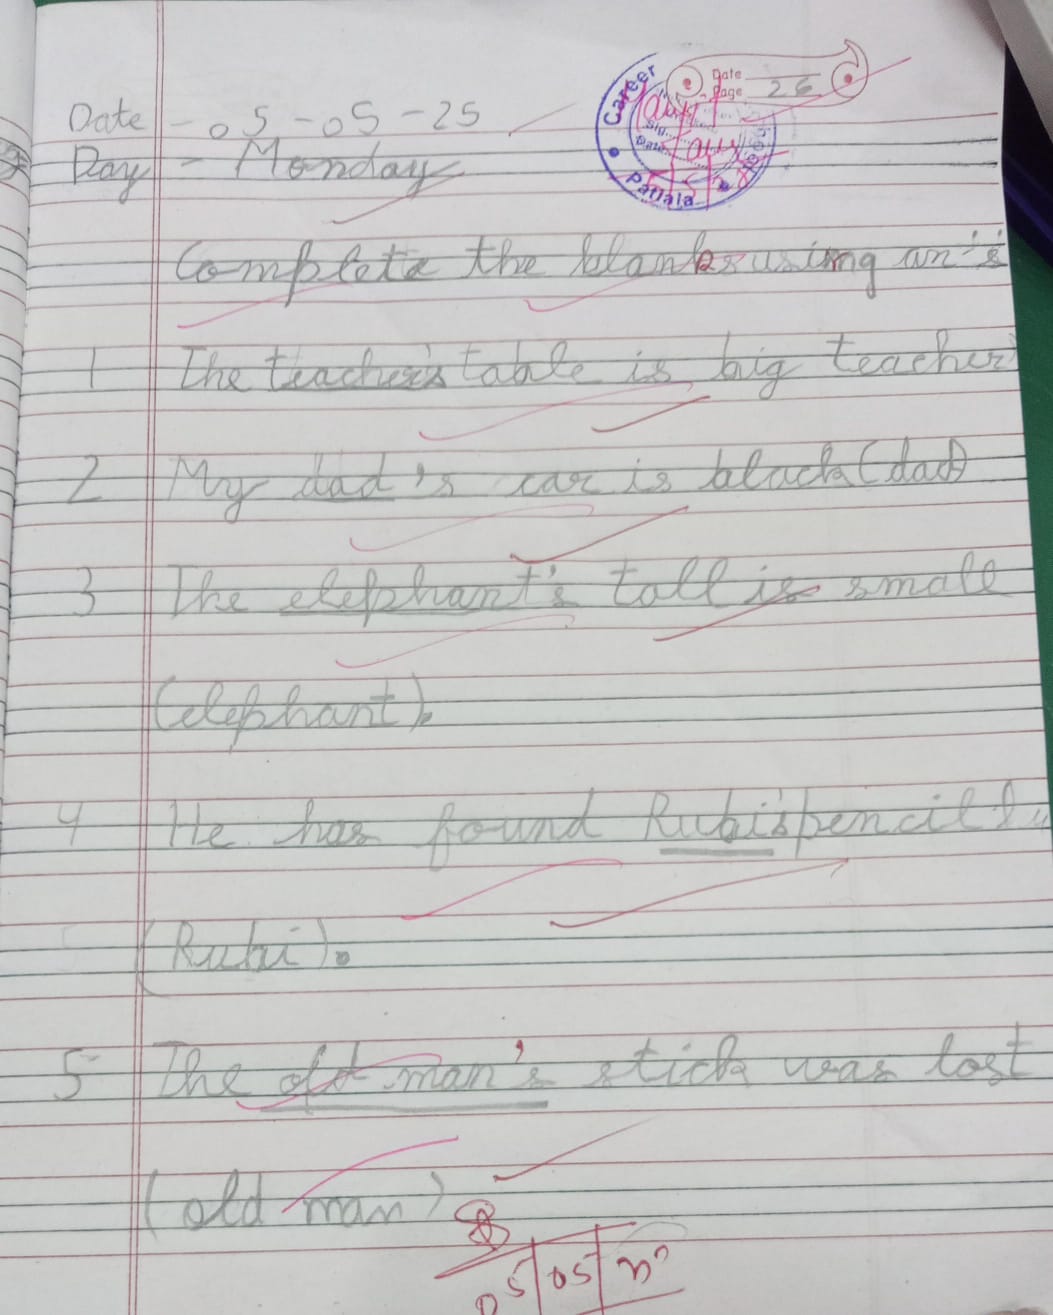 Date
Page 26
Career
Sig.
Date
Patiala
Date - 05 - 05 - 25
Day - Monday
Complete the blanks using an 's
1 The teacher's table is big teacher
2 My dad's car is black (dad)
3 The elephant's tall is small
(elephant).
4 He has found Rubi's pencil
(Rubi).
5 The old man's stick was lost
(old man)
05/05/